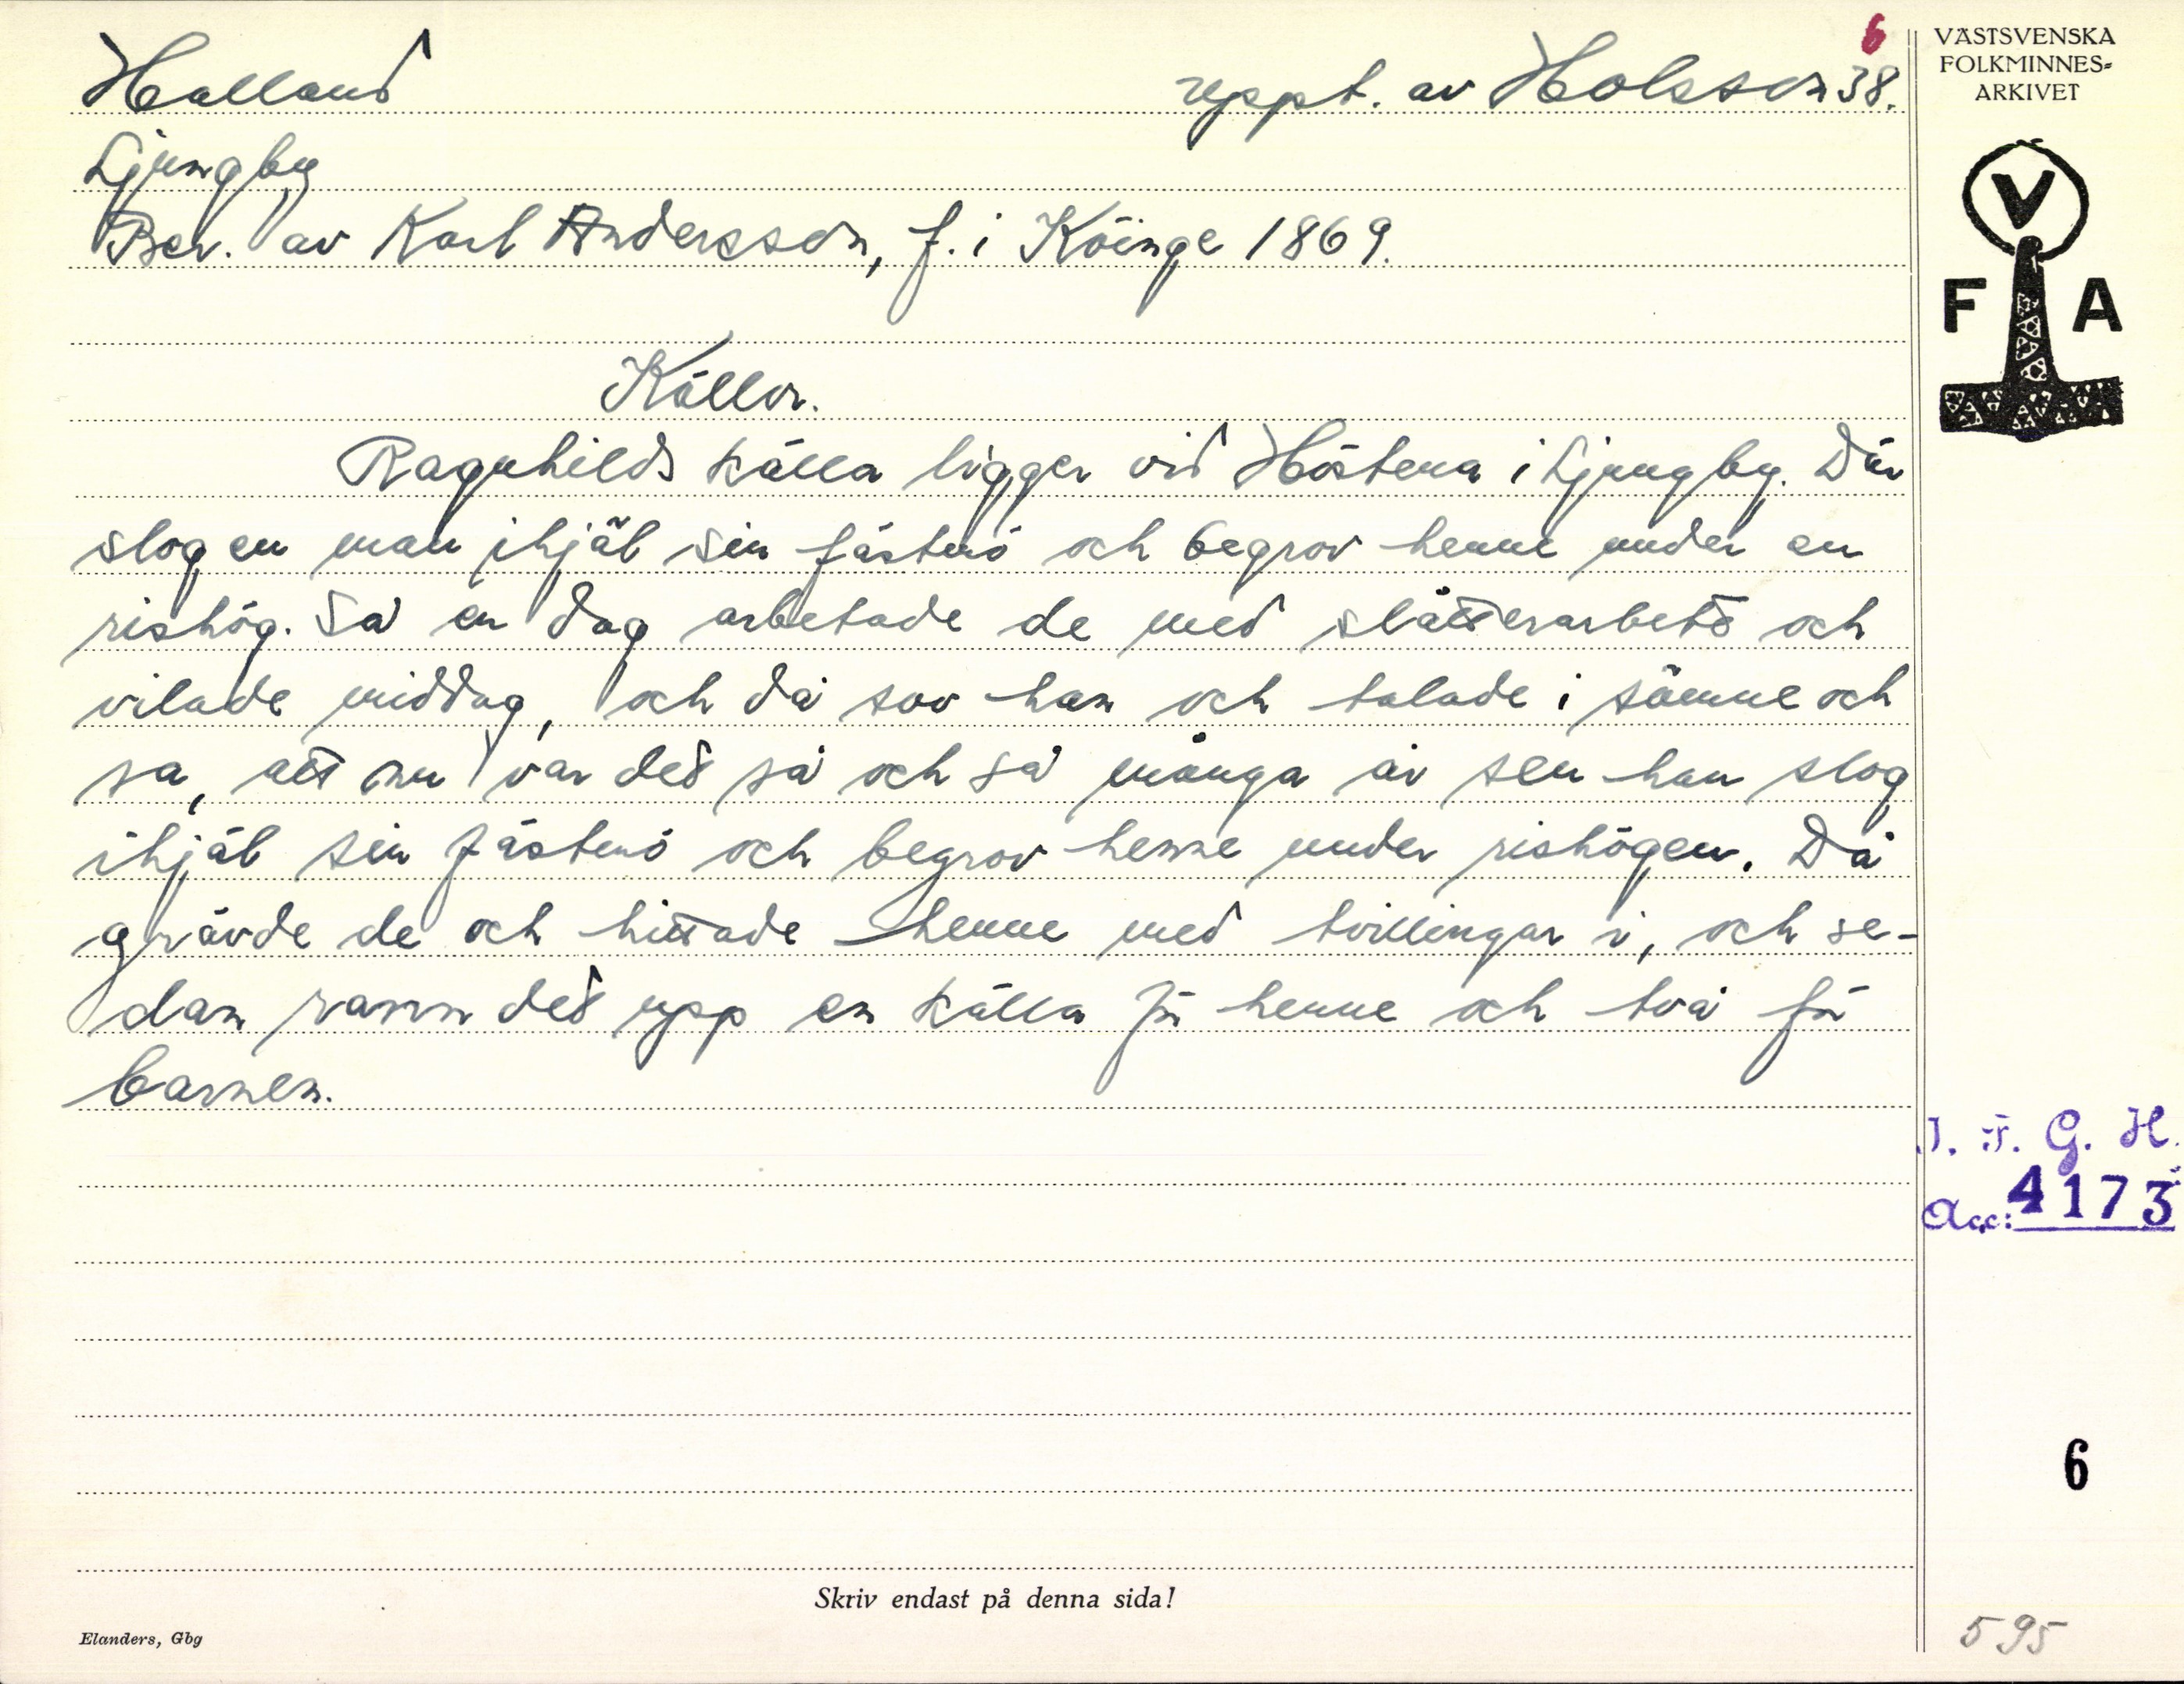 6
Halland uppt. av Holsson 38.
Ljungby
Ber. av Karl Andersson, f. i Köinge 1869.
Källor.
Ragnhilds källa ligger vid Höstena i Ljungby. Där
slog en man ihjäl sin fästmö och begrov henne under en
rishög. Så en dag arbetade de med slåtterarbete och
vilade middag, och då sov han och talade i sömne och
sa, att nu var det så och så många år sen han slog
ihjäl sin fästmö och begrov henne under rishögen. Då
grävde de och hittade henne med tvillingar i, och se-
dan rann det upp en källa för henne och två för
barnen.
Skriv endast på denna sida!
Elanders, Gbg
VÄSTSVENSKA
FOLKMINNES-
ARKIVET
V
F A
I. F. G. H.
Acc: 4173
6
595